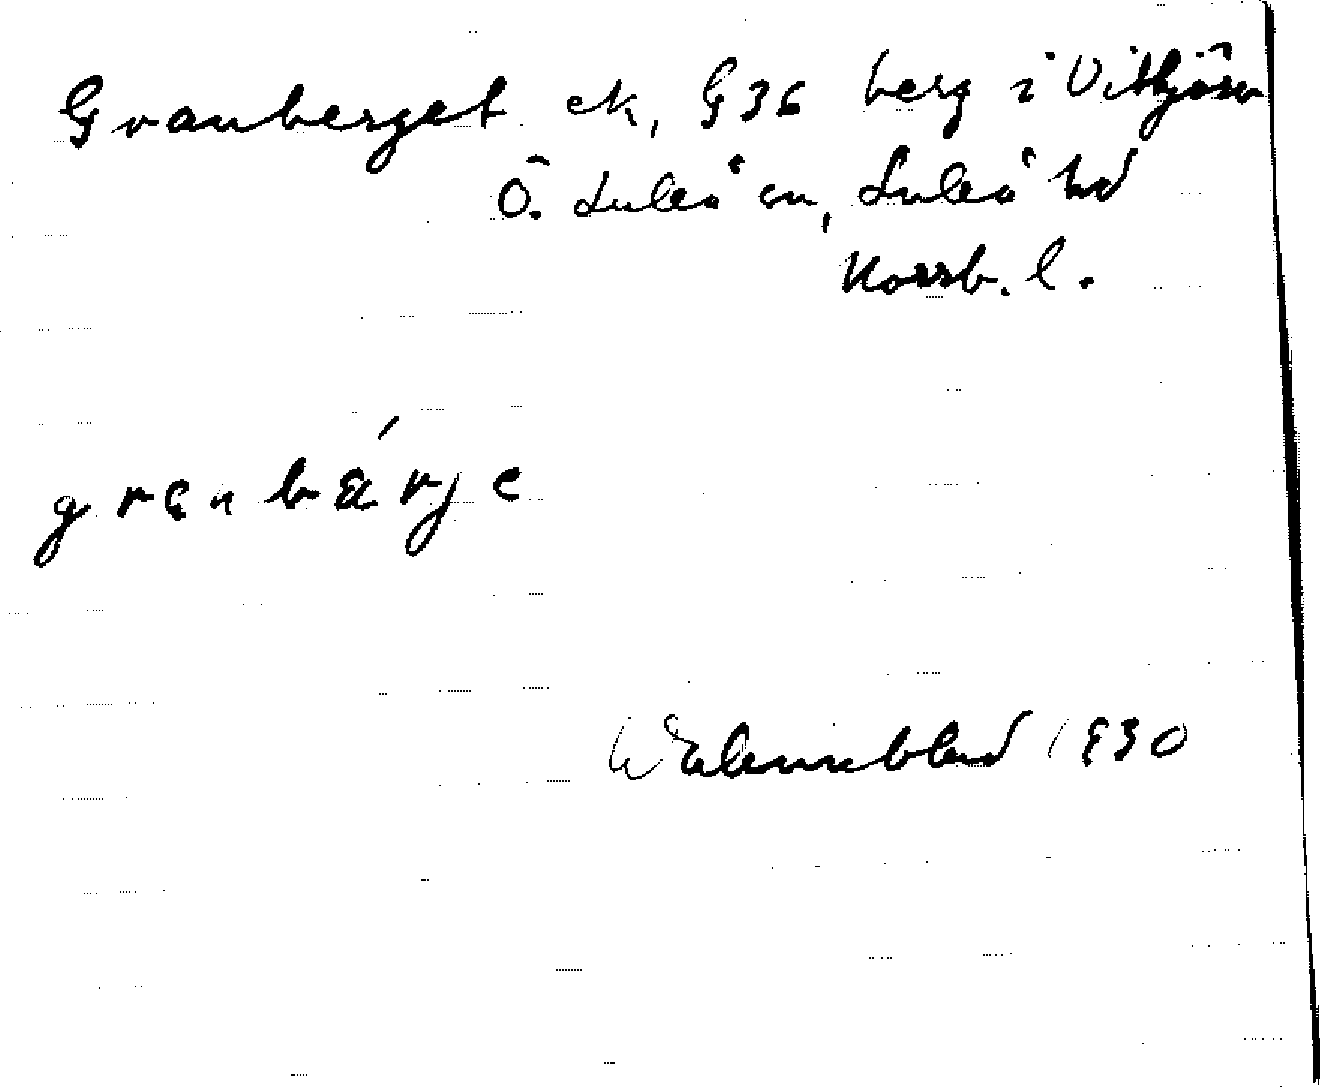 Granberget ek, G36 berg i Vittjärn
Ö. Luleå sn, Luleå hd
Norrb. l.
granbärje
1930